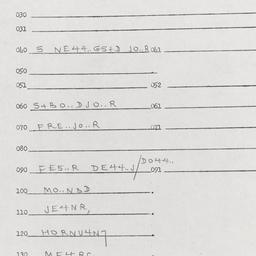 030
031
040 S NE44.GS+D JO..R 041
050
051 052
060 S+BO..DJO..R 061
070 FRE..JO..R 071
080
090 FES..R DE44..J/DO44.. 091
100 MO..NDD
110 JE4NR,
120 HORNU4N7
130 ME4RC